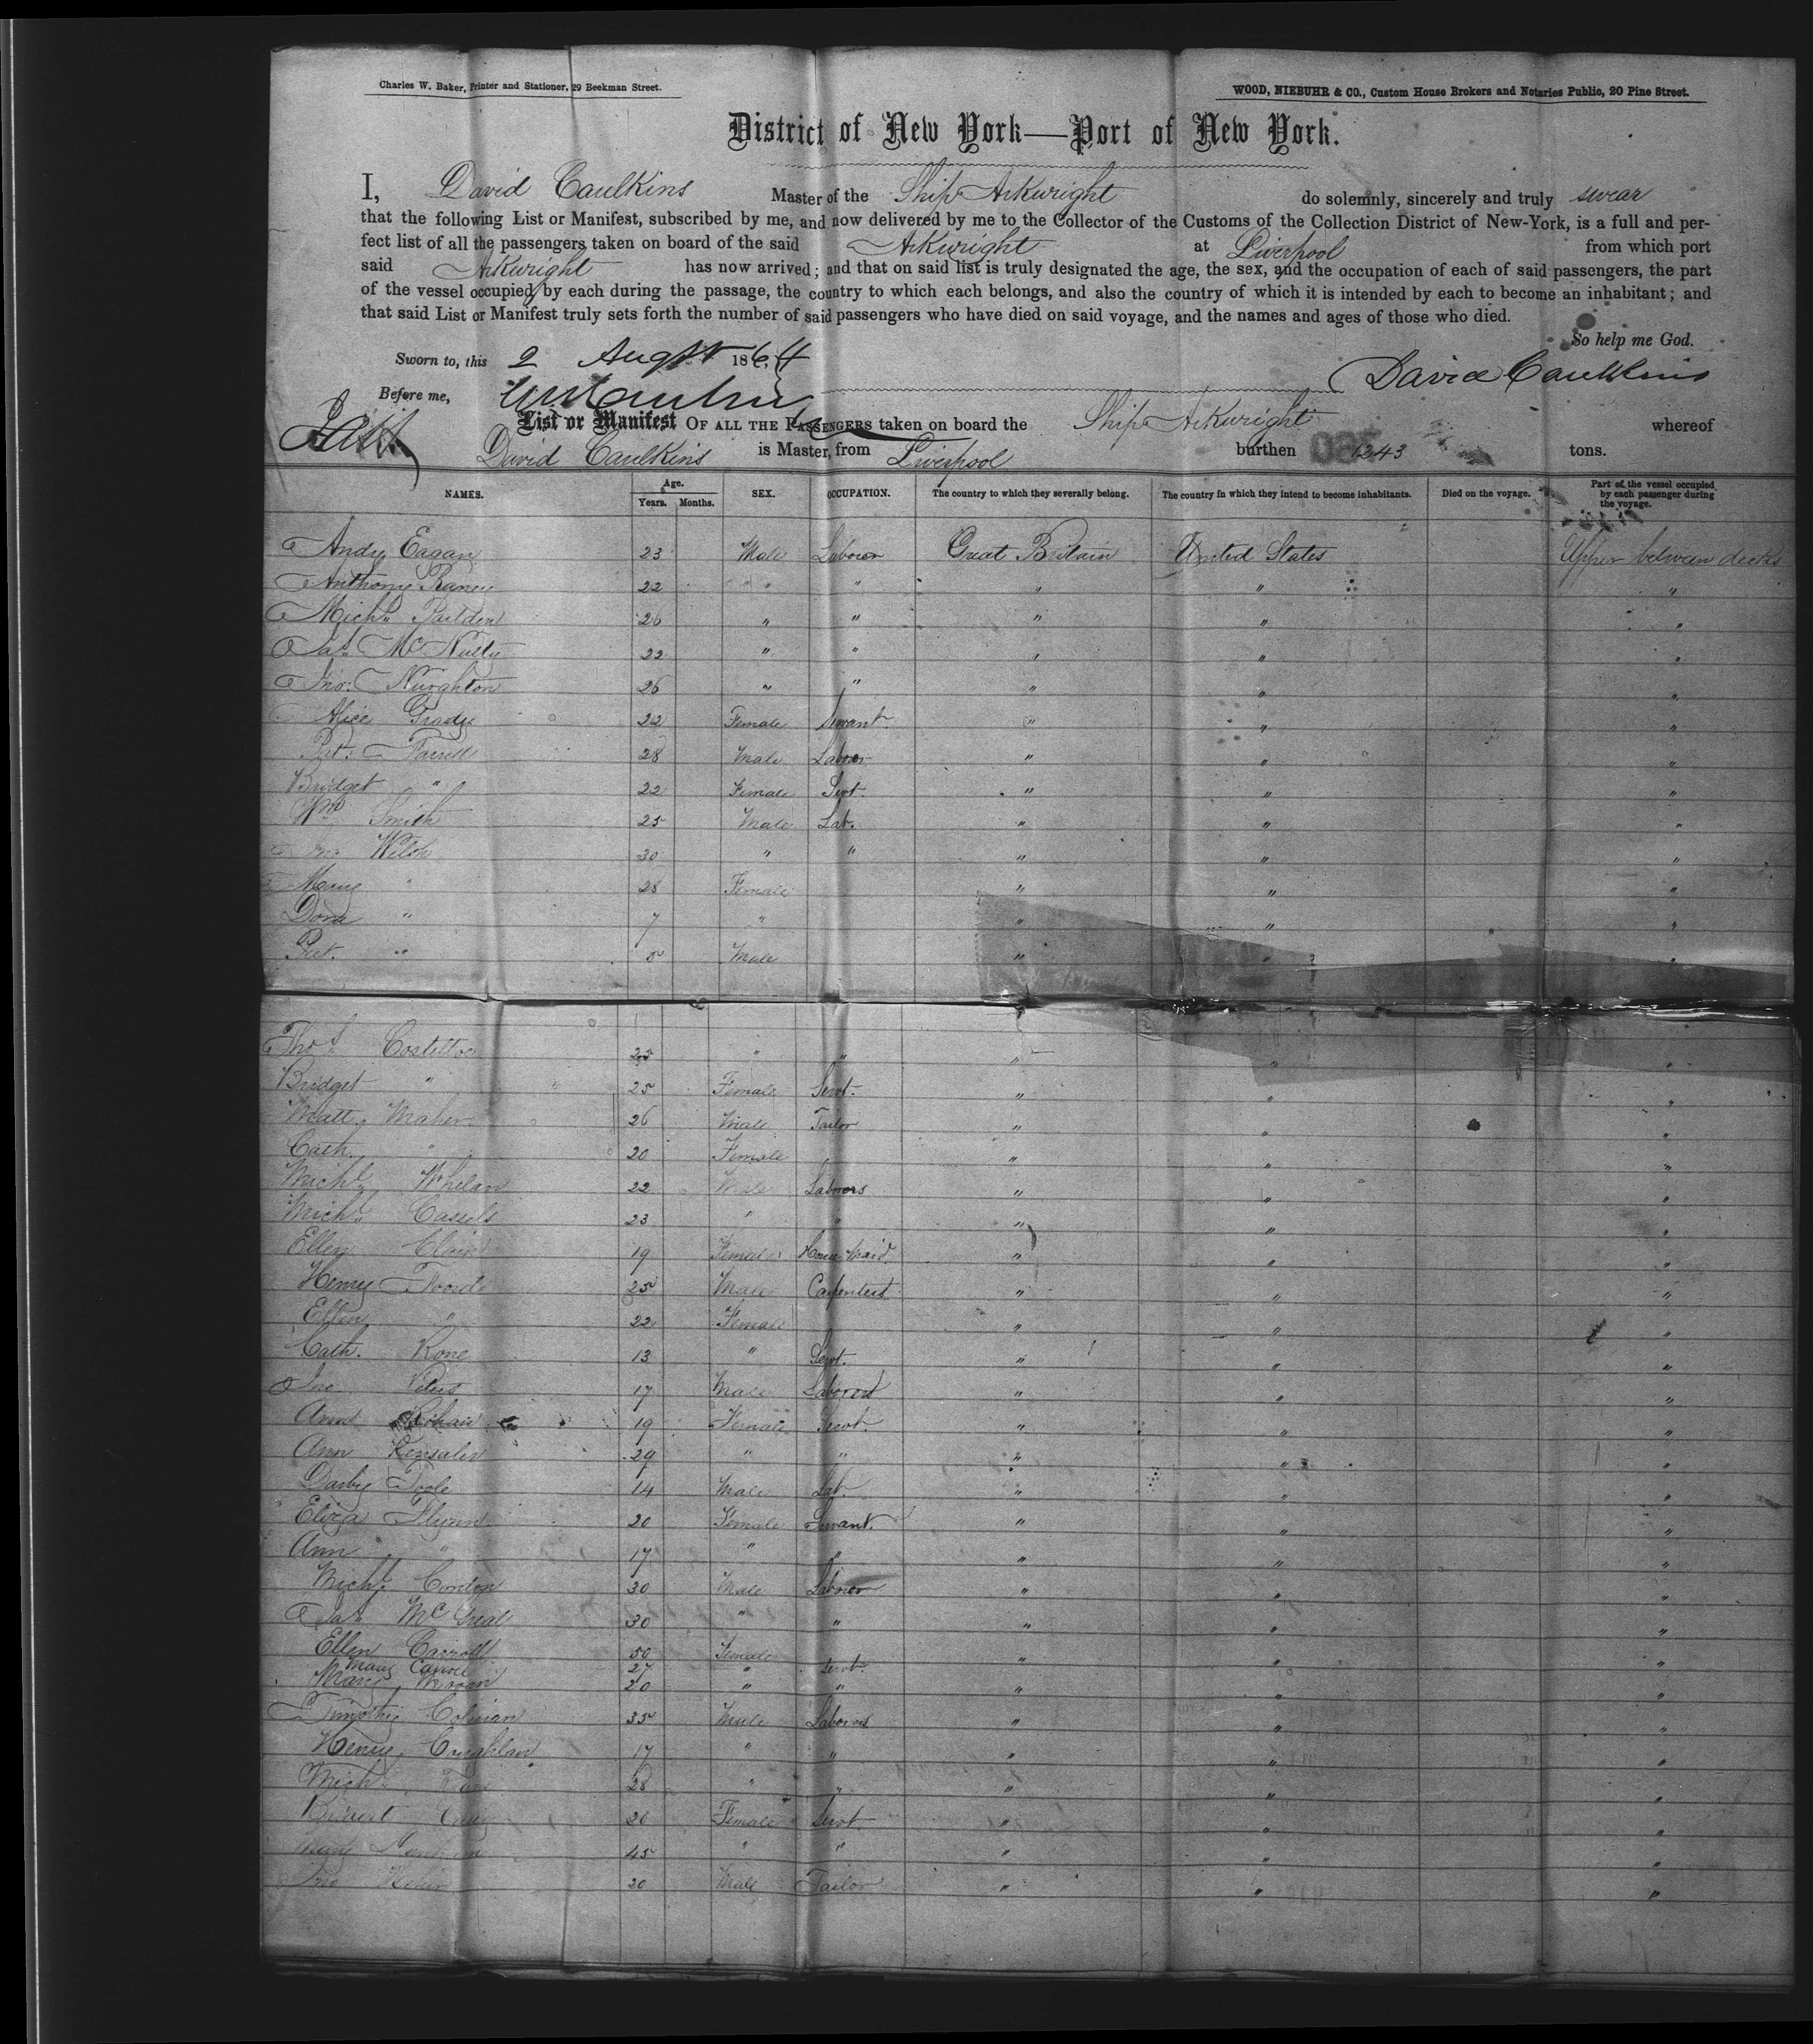 Charles W. Baker, Printer and Stationer, 29 Beekman Street.
WOOD, NIEBUHR & CO., Custom House Brokers and Notaries Public, 20 Pine Street.
District of New York—Port of New York.
I, David Caulkins Master of the Ship Arkwright do solemnly, sincerely and truly swear
that the following List or Manifest, subscribed by me, and now delivered by me to the Collector of the Customs of the Collection District of New-York, is a full and per-
fect list of all the passengers taken on board of the said Arkwright at Liverpool from which port
said Arkwright has now arrived; and that on said list is truly designated the age, the sex, and the occupation of each of said passengers, the part
of the vessel occupied by each during the passage, the country to which each belongs, and also the country of which it is intended by each to become an inhabitant; and
that said List or Manifest truly sets forth the number of said passengers who have died on said voyage, and the names and ages of those who died.
So help me God.
Sworn to, this 2 Augst 1864
David Caulkins
Before me,
List or Manifest OF ALL THE PASSENGERS taken on board the Ship Arkwright whereof
David Caulkins is Master, from Liverpool burthen 1243 tons.
NAMES. Age. Years. Months. SEX. OCCUPATION. The country to which they severally belong. The country in which they intend to become inhabitants. Died on the voyage. Part of the vessel occupied by each passenger during the voyage.
Andy Eagan 23 Male Laborer Great Britain United States Upper between decks
Anthony Raney 22 " " " " "
Michl 26 " " " " "
Jas McNulty 22 " " " " "
Jno: Naughton 26 " " " " "
Alice Grady 22 Female Servant " " "
Pat: Farrell 28 Male Laborer " " "
Bridget " 22 Female Servt. " " "
Wm Smith 25 Male Lab. " " "
Jno Welsh 30 " " " " "
Mary " 28 Female " " "
Dora " 7 " " " "
Pat. " 5 Male " " "
Thos Costelloe 25 " " " " "
Bridget " 25 Female Servt. " " "
Matt. Maher 26 Male Tailor " " "
Cath. " 20 Female " " "
Michl Whelan 22 Male Laborers " " "
Michl Cassels 23 " " " " "
Ellen 19 Female House Maid " " "
Henry 25 Male Carpenters " " "
Ellen " 22 Female " " "
Cath. Kone 13 " Servt. " " "
Jno Peters 17 Male Laborers " " "
Ann 19 Female Servt. " " "
Ann 29 " " " " "
Darby Toole 14 Male Lab. " " "
Eliza Flynn 20 Female Servant. " " "
Ann " 17 " " " " "
Michl Condon 30 Male Laborer " " "
Jas McGreal 30 " " " " "
Ellen Carroll 50 Female " "
Mary Carroll 27 " Servt.
Mary Moran 20 " " " " "
Timothy Colman 35 Male Laborers " " "
Henry Coughlan 17 " " " " "
Michl 28 " " " " "
Bridget 20 Female Servt " " "
Mary 45 " " " " "
Jno 20 Male Tailor " " "